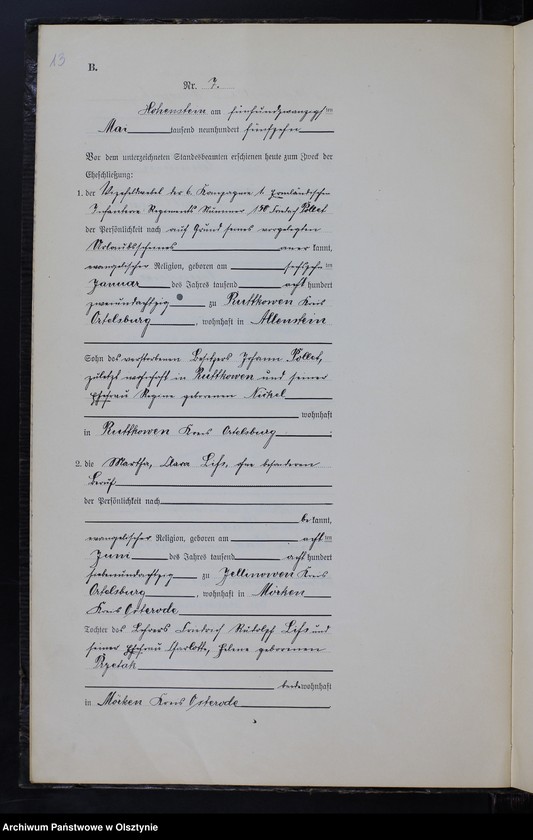 13
B.
Nr. 7.
Hohenstein am fünfundzwanzigsten
Mai tausend neunhundert fünfzehn
Vor dem unterzeichneten Standesbeamten erschienen heute zum Zweck der
Eheschließung:
1. der Vizefeldwebel der 6. Kompagnie 1. Ermländischen
Infanterie Regiments Nummer 150 Pollet
der Persönlichkeit nach auf Grund seines vorgelegten
Urlaubsscheines anerkannt,
evangelischer Religion, geboren am sechszehnten
Januar des Jahres tausend acht hundert
zweiundachtzig zu Ruttkowen Kreis
Ortelsburg, wohnhaft in Allenstein
Sohn des verstorbenen Besitzers Johann Pollet,
zuletzt wohnhaft in Ruttkowen und seiner
Ehefrau Regine geborenen Nickel
wohnhaft
in Ruttkowen Kreis Ortelsburg.
2. die Martha, Clara Liss, ohne besonderen
Beruf
der Persönlichkeit nach
bekannt,
evangelischer Religion, geboren am achten
Juni des Jahres tausend acht hundert
siebenundachtzig zu Jellinowen Kreis
Ortelsburg, wohnhaft in Mörken
Kreis Osterode
Tochter des Lehrers Friedrich Rudolf Liss und
seiner Ehefrau Charlotte, Helene geborenen
Przetak
beide wohnhaft
in Mörken Kreis Osterode
Archiwum Państwowe w Olsztynie